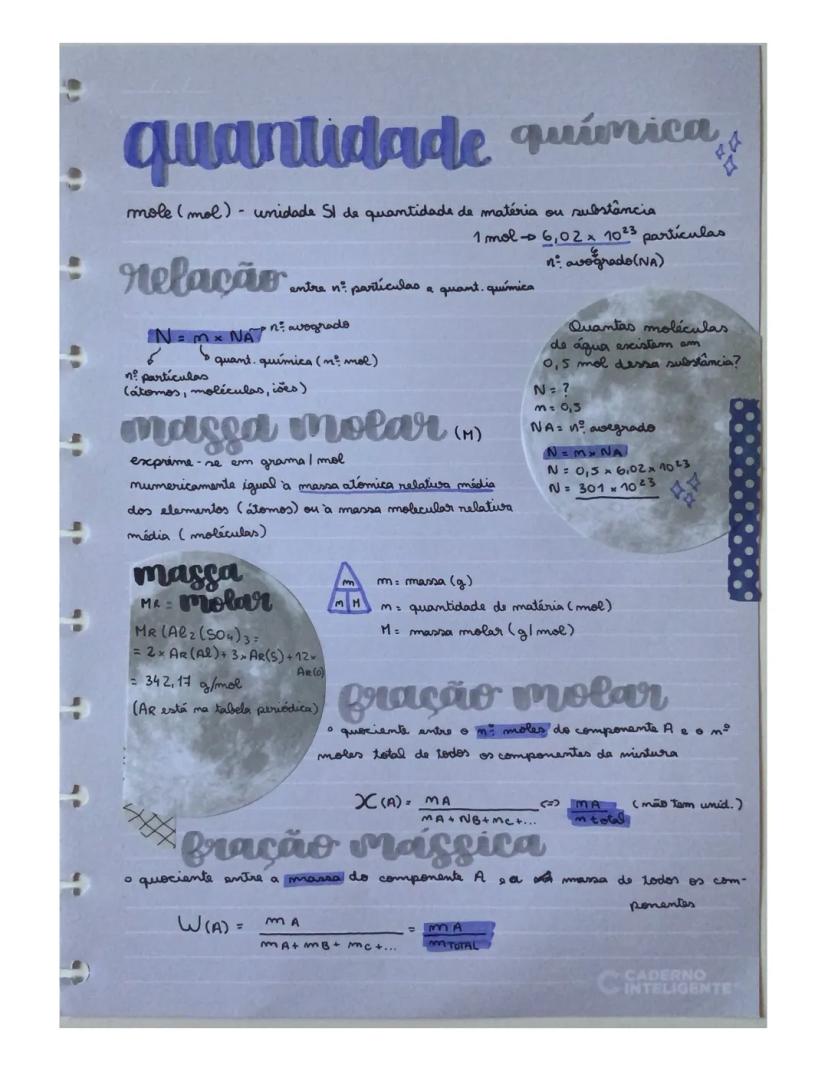 quantidade química
mole (mol) - unidade SI de quantidade de matéria ou substância
1 mol → 6,02 × 10²³ partículas
nº avogrado (NA)
relação entre nº partículas e quant. química
N = n × NA → nº avogrado
quant. química (nº mol)
nº partículas
(átomos, moléculas, iões)
Quantas moléculas
de água existem em
0,5 mol dessa substância?
N = ?
n = 0,5
NA = nº avogrado
N = n × NA
N = 0,5 × 6,02 × 10²³
N = 301 × 10²³
massa molar (M)
exprime-se em grama/mol
numericamente igual à massa atómica relativa média
dos elementos (átomos) ou à massa molecular relativa
média (moléculas)
massa
MR = molar
MR (Al₂(SO₄)₃ =
= 2 × AR(Al) + 3 × AR(S) + 12 ×
AR(O)
= 342,17 g/mol
(AR está na tabela periódica)
m
n M
m = massa (g)
n = quantidade de matéria (mol)
M = massa molar (g/mol)
fração molar
° quociente entre o nº moles do componente A e o nº
moles total de todos os componentes da mistura
X(A) = nA / nA + NB + nC + ... <=> nA / n total (não tem unid.)
fração mássica
° quociente entre a massa do componente A e a massa de todos os com-
ponentes
W(A) = mA / mA + mB + mC + ... = mA / m TOTAL
CADERNO
INTELIGENTE